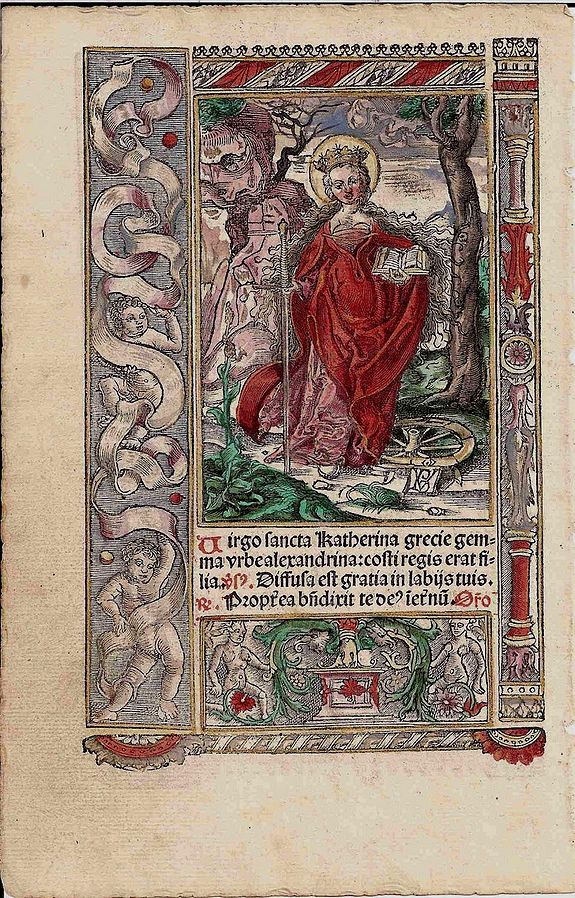 Uirgo sancta Katherina grecie gem-
ma vrbe alexandrina: costi regis erat fi-
lia. Diffusa est gratia in labijs tuis.
Propt̄ea bn̄dixit te de⁹ i et̄nū. Or̄o